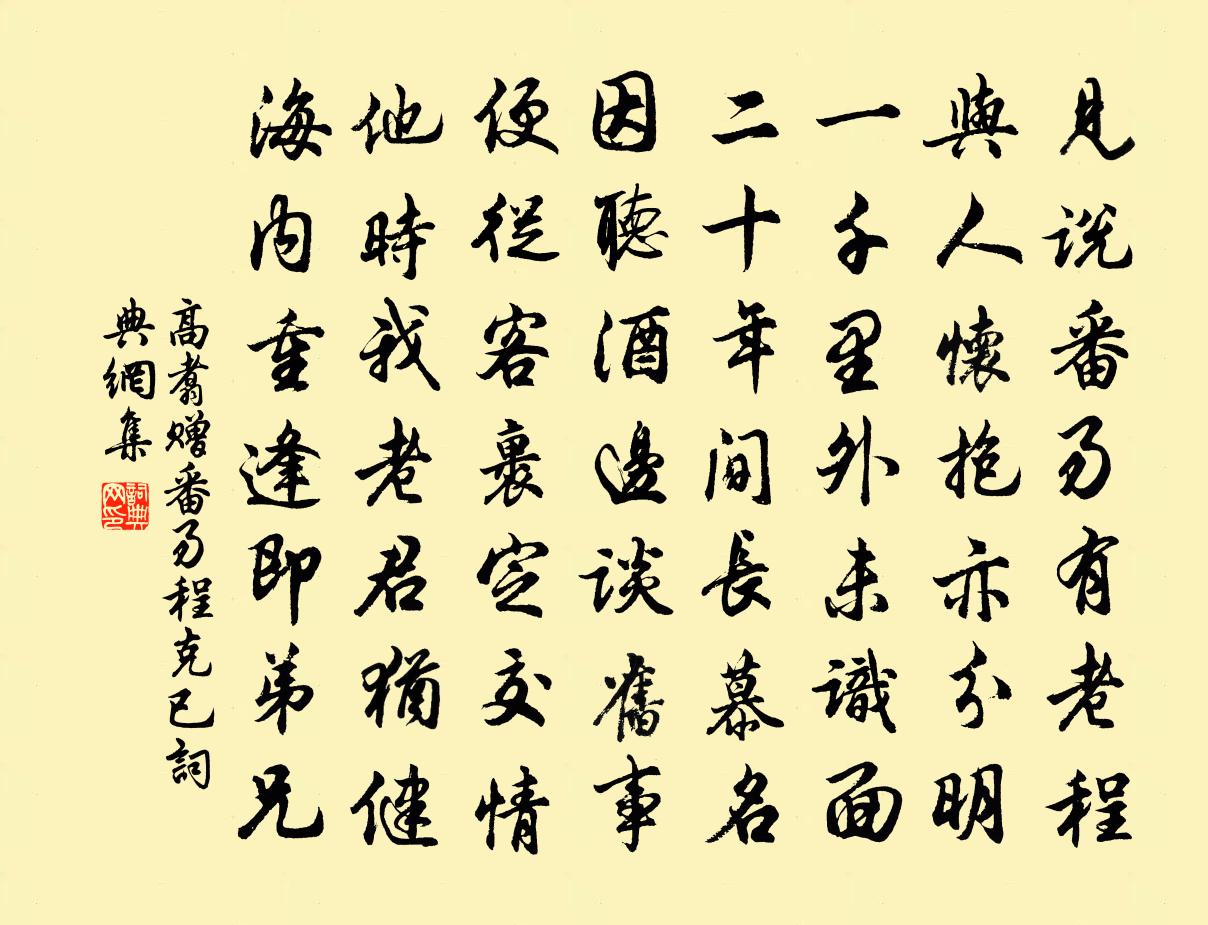 見説番昜有老程
與人懷抱亦分明
一千里外未識面
二十年間長慕名
因聽酒邊談舊事
便從客裏定交情
他時我老君猶健
海内重逢即弟兄
高翥赠番昜程克已詞
典網集
詞典网印